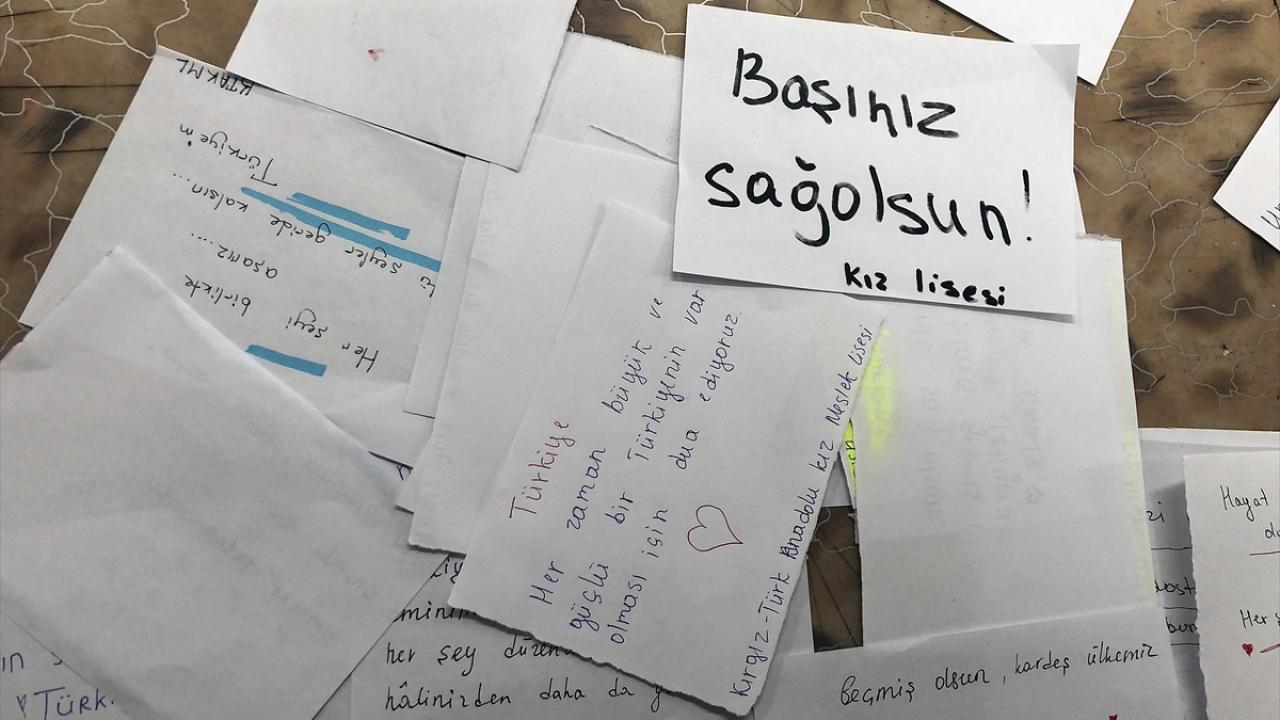 Başınız
sağolsun!
kız lisesi
KTAKML
Türkiye'm
şeyler geride kalsın...
aşarız....
Her şeyi birlikte
Türkiye
Her zaman büyük ve
güçlü bir Türkiyenin var
olması için dua ediyoruz.
Kırgız-Türk Anadolu kız Meslek lisesi
her şey
hâlinizden daha da
Türk.
Geçmiş olsun, kardeş ülkemiz
Hayat
Her